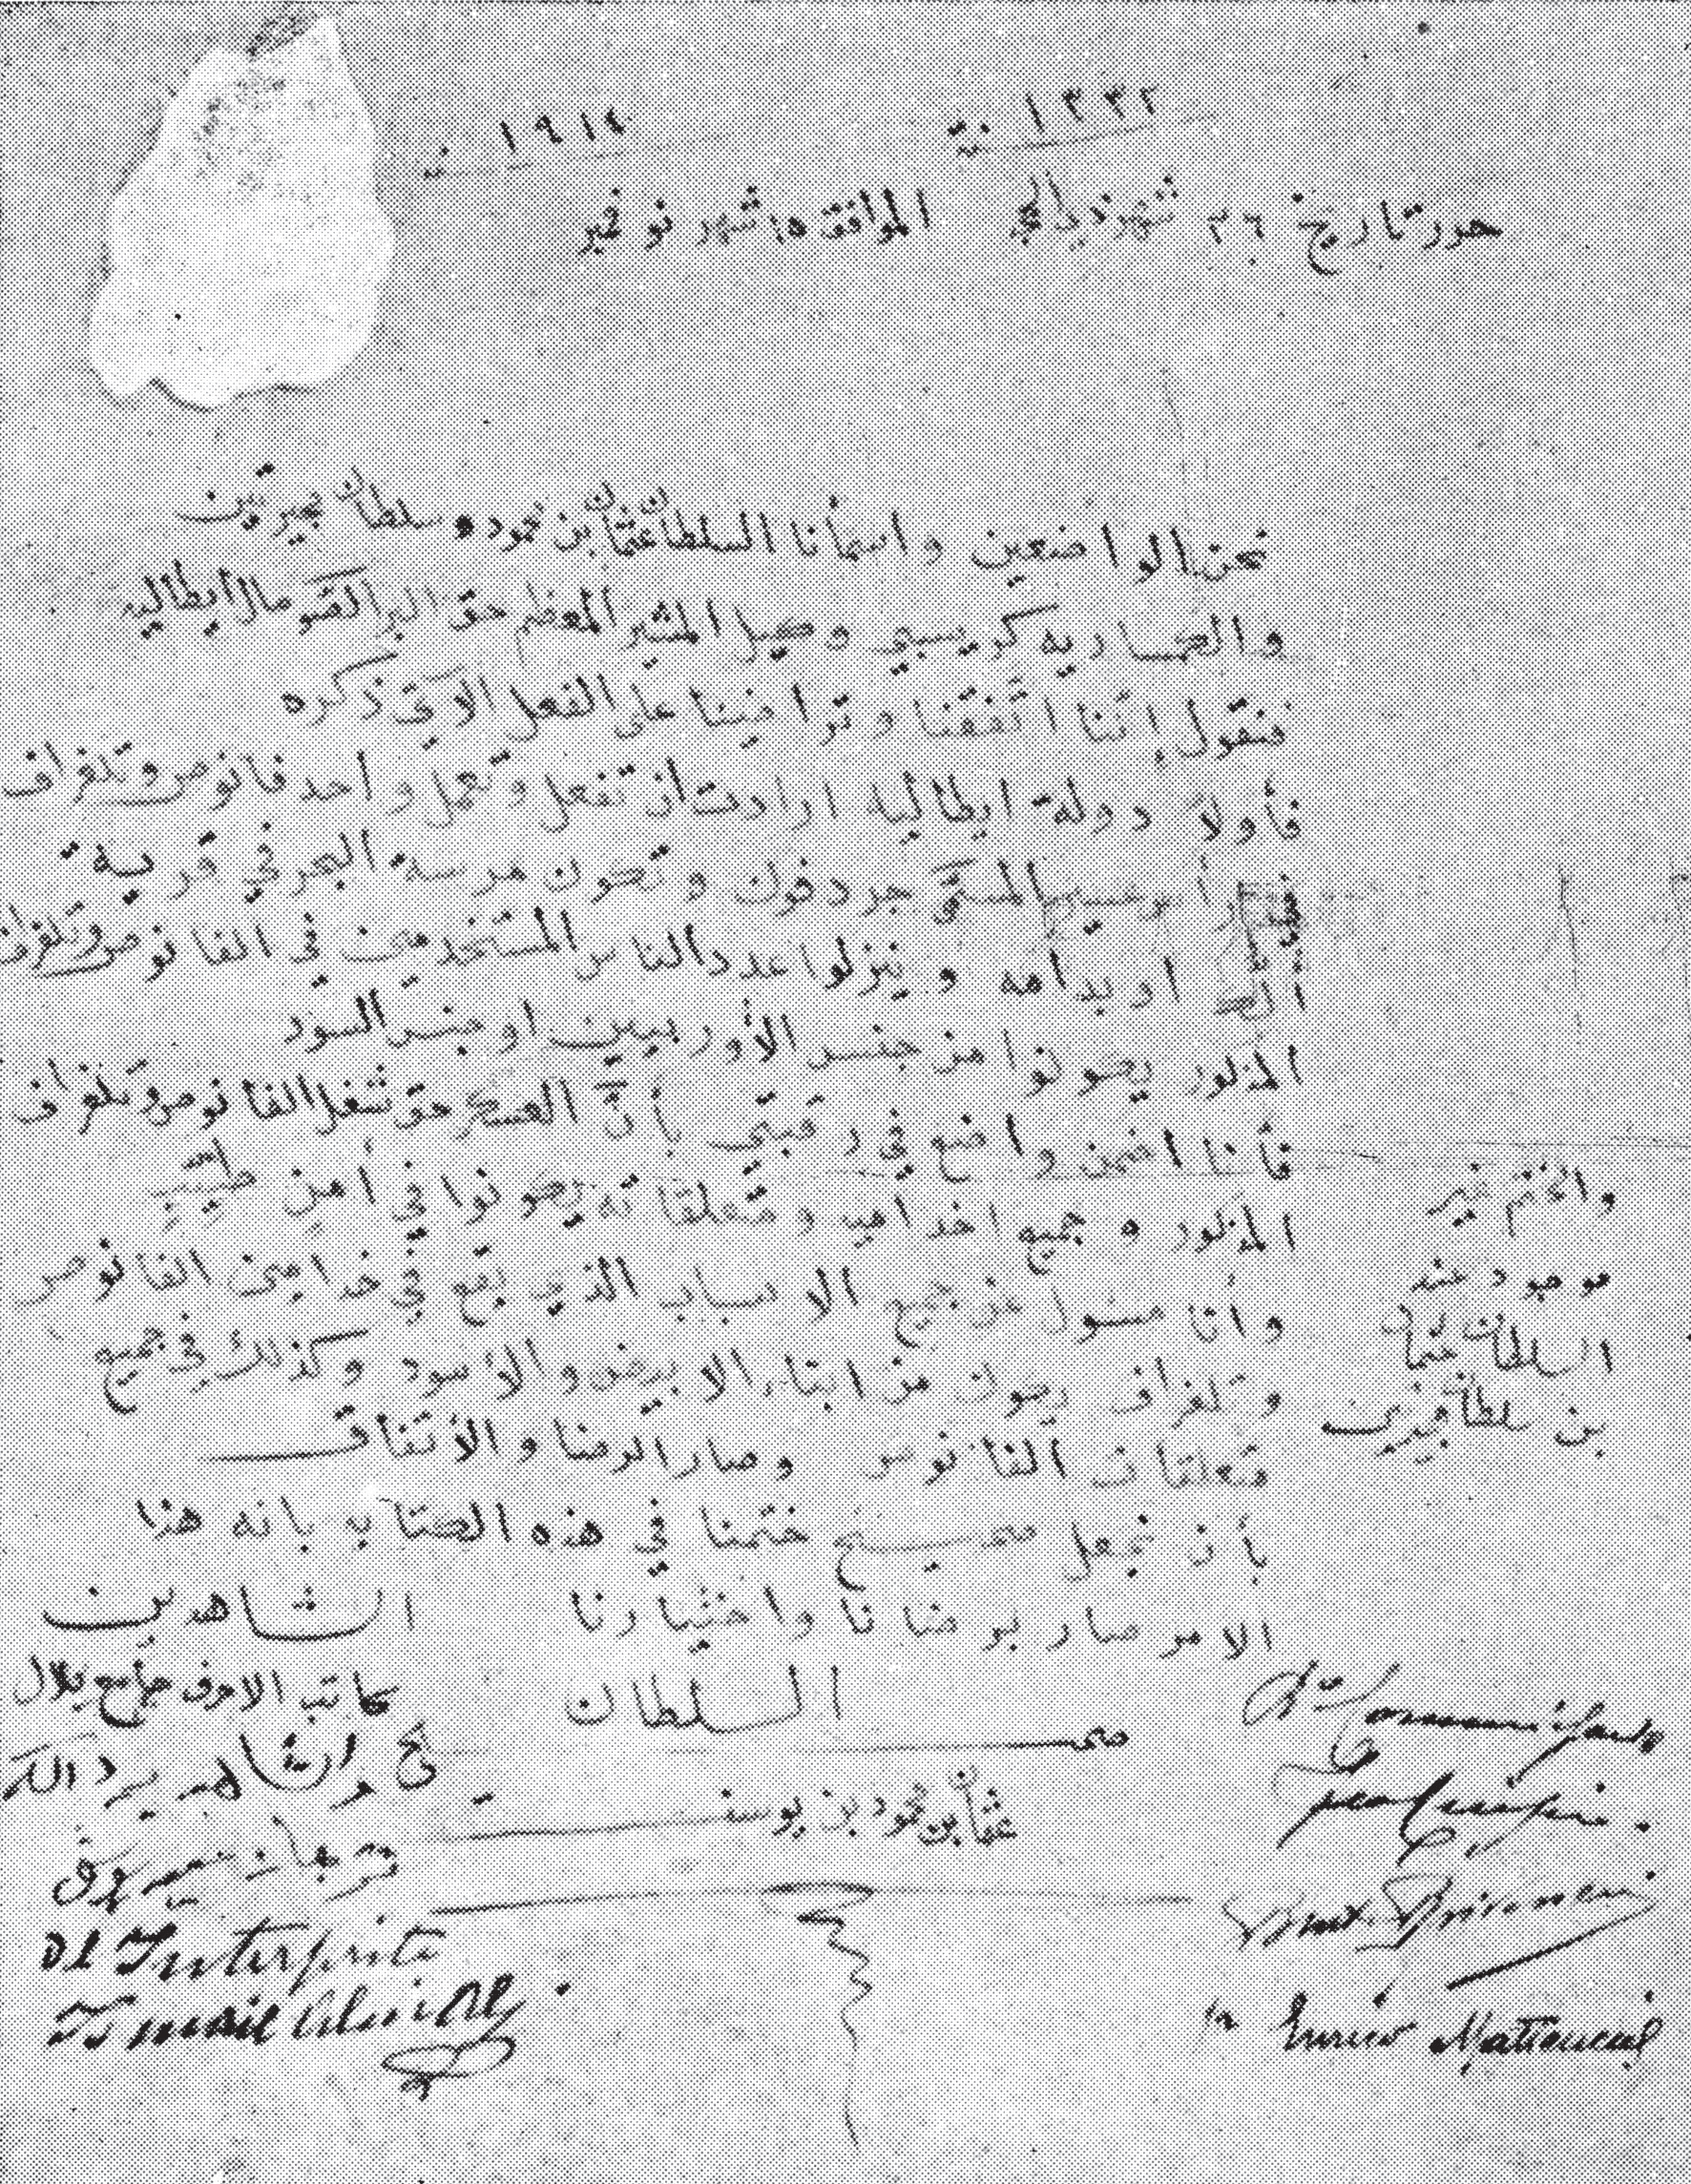 ١٣٣٢ سنة ١٩١٤ سنة
حرر تاريخ ٢٦ شهر ذي الحجة الموافق ١٥ شهر نوفمبر
نحن الواضعين واسمأنا السلطان عثمان بن محمود سلطان ميجرتين
كريسبي وكيل المشير المعظم حق البر الصومال الايطاليه
فنقول اننا اتفقنا وتراضينا على الفعل الآتي ذكره
فأولاً دولة ايطاليه ارادت ان تفعل وتعمل واحد فانوص وتلغراف
المسمى جردفون وتكون مرسة البحر في قرية
او بدامه وينزلوا عدد الناس المستخدمين في الفانوص وتلغراف
المذكور يكونوا من جنس الأوربيين او جنس السود
فأنا اضمن واضع في رقبتي بأنّ العسكر حق شغل الفانوص وتلغراف
المذكور وجميع اخدامه ومتعلقاته يكونوا في أمن طيب
وأنا مسول عن جميع الاسباب الذي تقع في خدامين الفانوص
وتلغراف يكون من ابتداء الابيض والأسود وكذلك في جميع
متعلقات الفانوص وصار الرضا والأتفاق
بأن نجعل صحيح ختمنا في هذه الكتابه بانه هذا
الامر صار برضانا واختيارنا
والختم غير
موجود عند
السلطان عثمان
بن سلطان ميجرتين
السلطان
صحـ يح
عثمان بن محمود بن يوسف
الشاهدين
كاتب الاحرف جامع بلال
والشاهد
ترجمان
Il Interprete
Ismail
Enrico Matteucci